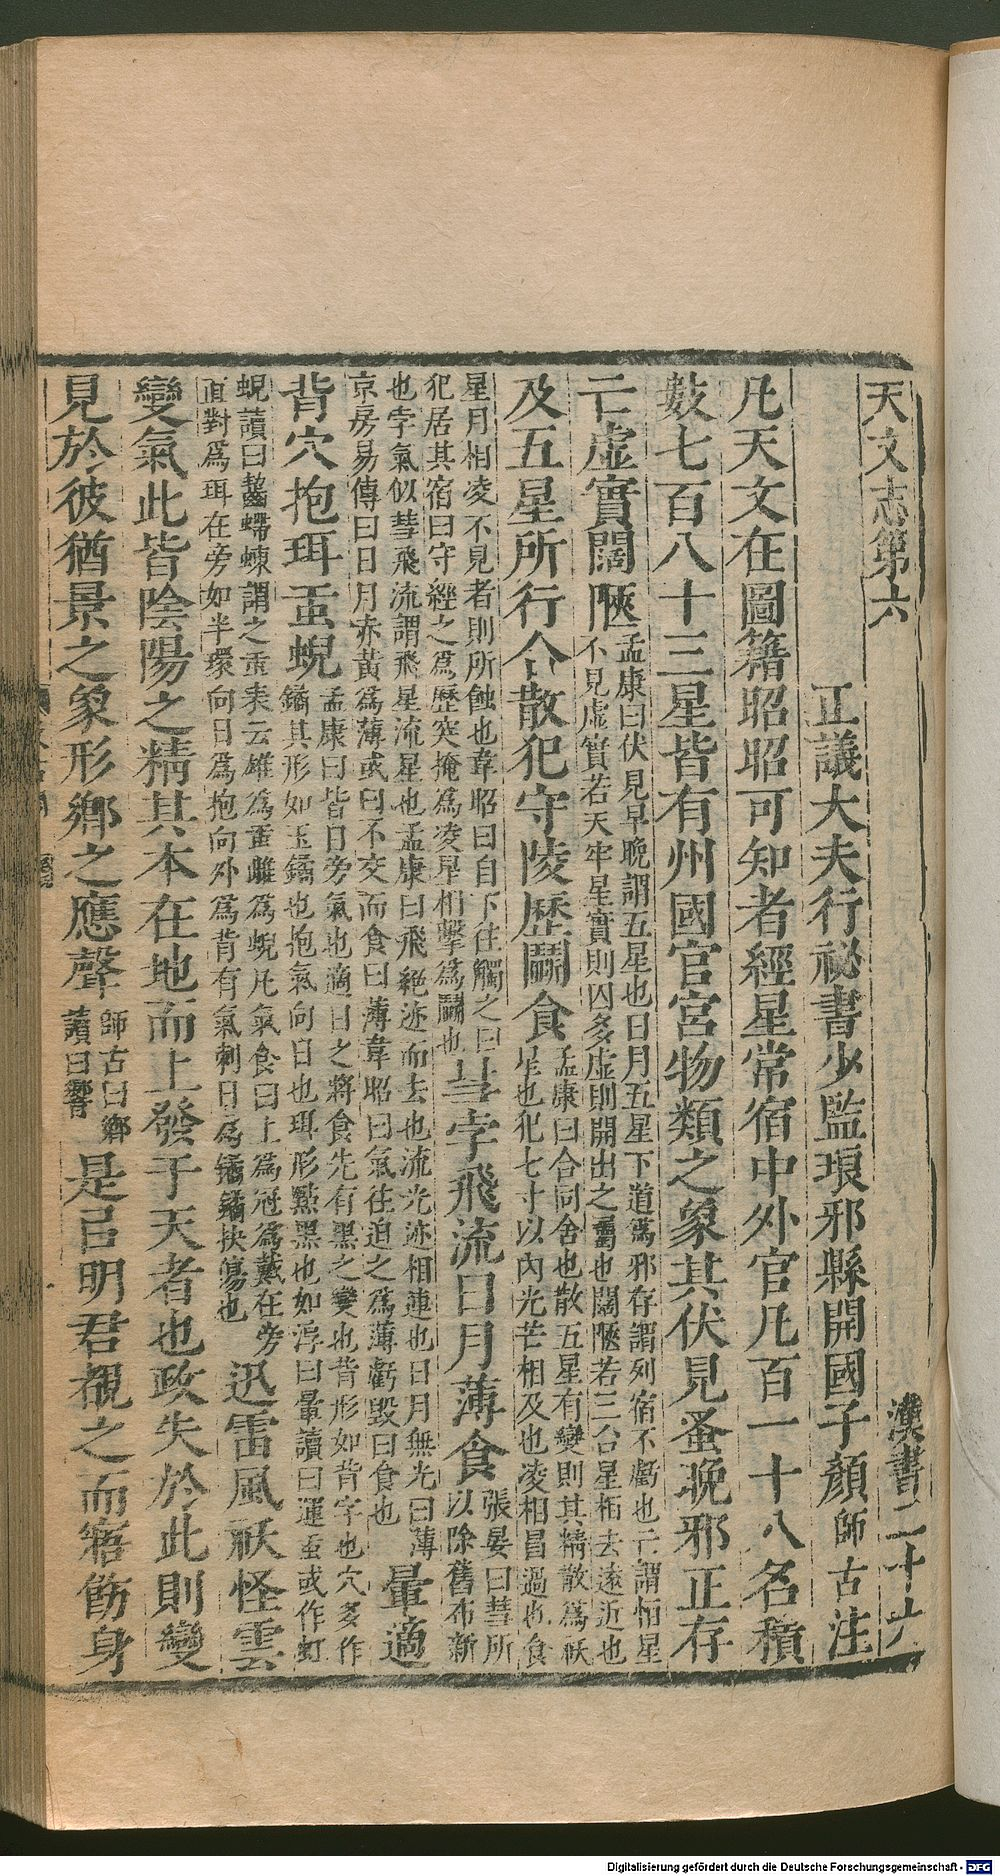 天文志第六　漢書二十六
正議大夫行祕書少監琅邪縣開國子顏師古注
凡天文在圖籍昭昭可知者經星常宿中外官凡百一十八名積
數七百八十三星皆有州國官宮物類之象其伏見蚤晚邪正存
亡虛實闊陿孟康曰伏見早晚謂五星也日月五星下道爲邪存謂列宿不虧也亡謂恒星不見虛實若天牢星實則囚多虛則開出之屬也闊陿若三台星相去遠近也
及五星所行合散犯守陵歷鬬食孟康曰合同舍也散五星有變則其精散爲祅星也犯七寸以內光芒相及也凌相冒過也食
星月相凌不見者則所蝕也韋昭曰自下往觸之曰犯居其宿曰守經之爲歷突掩爲凌星相擊爲鬬也彗孛飛流日月薄食張晏曰彗所以除舊布新
也孛氣似彗飛流謂飛星流星也孟康曰飛絕迹而去也流光迹相連也日月無光曰薄京房易傳曰日月赤黃爲薄或曰不交而食曰薄韋昭曰氣往迫之爲薄虧毀曰食也暈適
背穴抱珥䖝蜺孟康曰皆日旁氣也適日之將食先有黑之變也背形如背字也穴多作鐍其形如玉鐍也抱氣向日也珥形點黑也如淳曰暈讀曰運䖝或作虹
蜺讀曰齧螮蝀謂之䖝表云雄爲䖝雌爲蜺凡氣食日上爲冠爲戴在旁直對爲珥在旁如半環向日爲抱向外爲背有氣刺日爲鐍鐍抉傷也迅雷風祅怪雲
變氣此皆陰陽之精其本在地而上發于天者也政失於此則變
見於彼猶景之象形鄉之應聲師古曰鄉讀曰響是㠯明君覩之而寤飭身
Digitalisierung gefördert durch die Deutsche Forschungsgemeinschaft - DFG